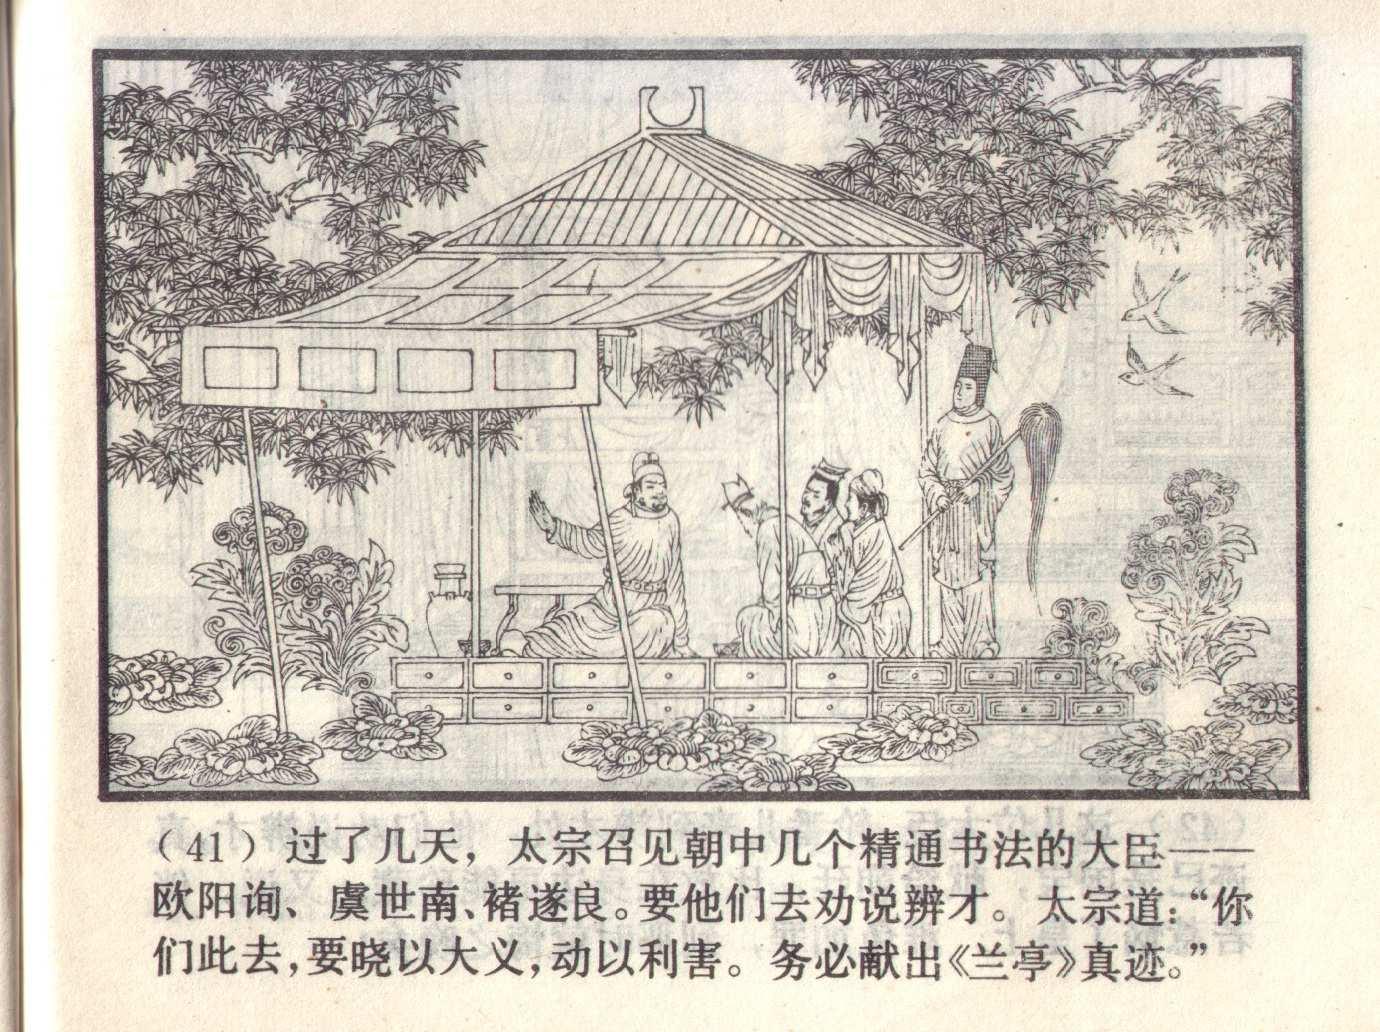 （41）过了几天，太宗召见朝中几个精通书法的大臣——
欧阳询、虞世南、褚遂良。要他们去劝说辨才。太宗道：“你
们此去，要晓以大义，动以利害。务必献出《兰亭》真迹。”